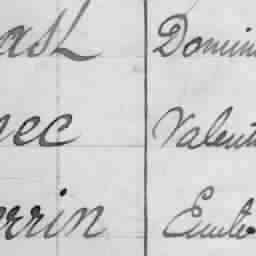 ash Domin
nec Valent
errin Emile